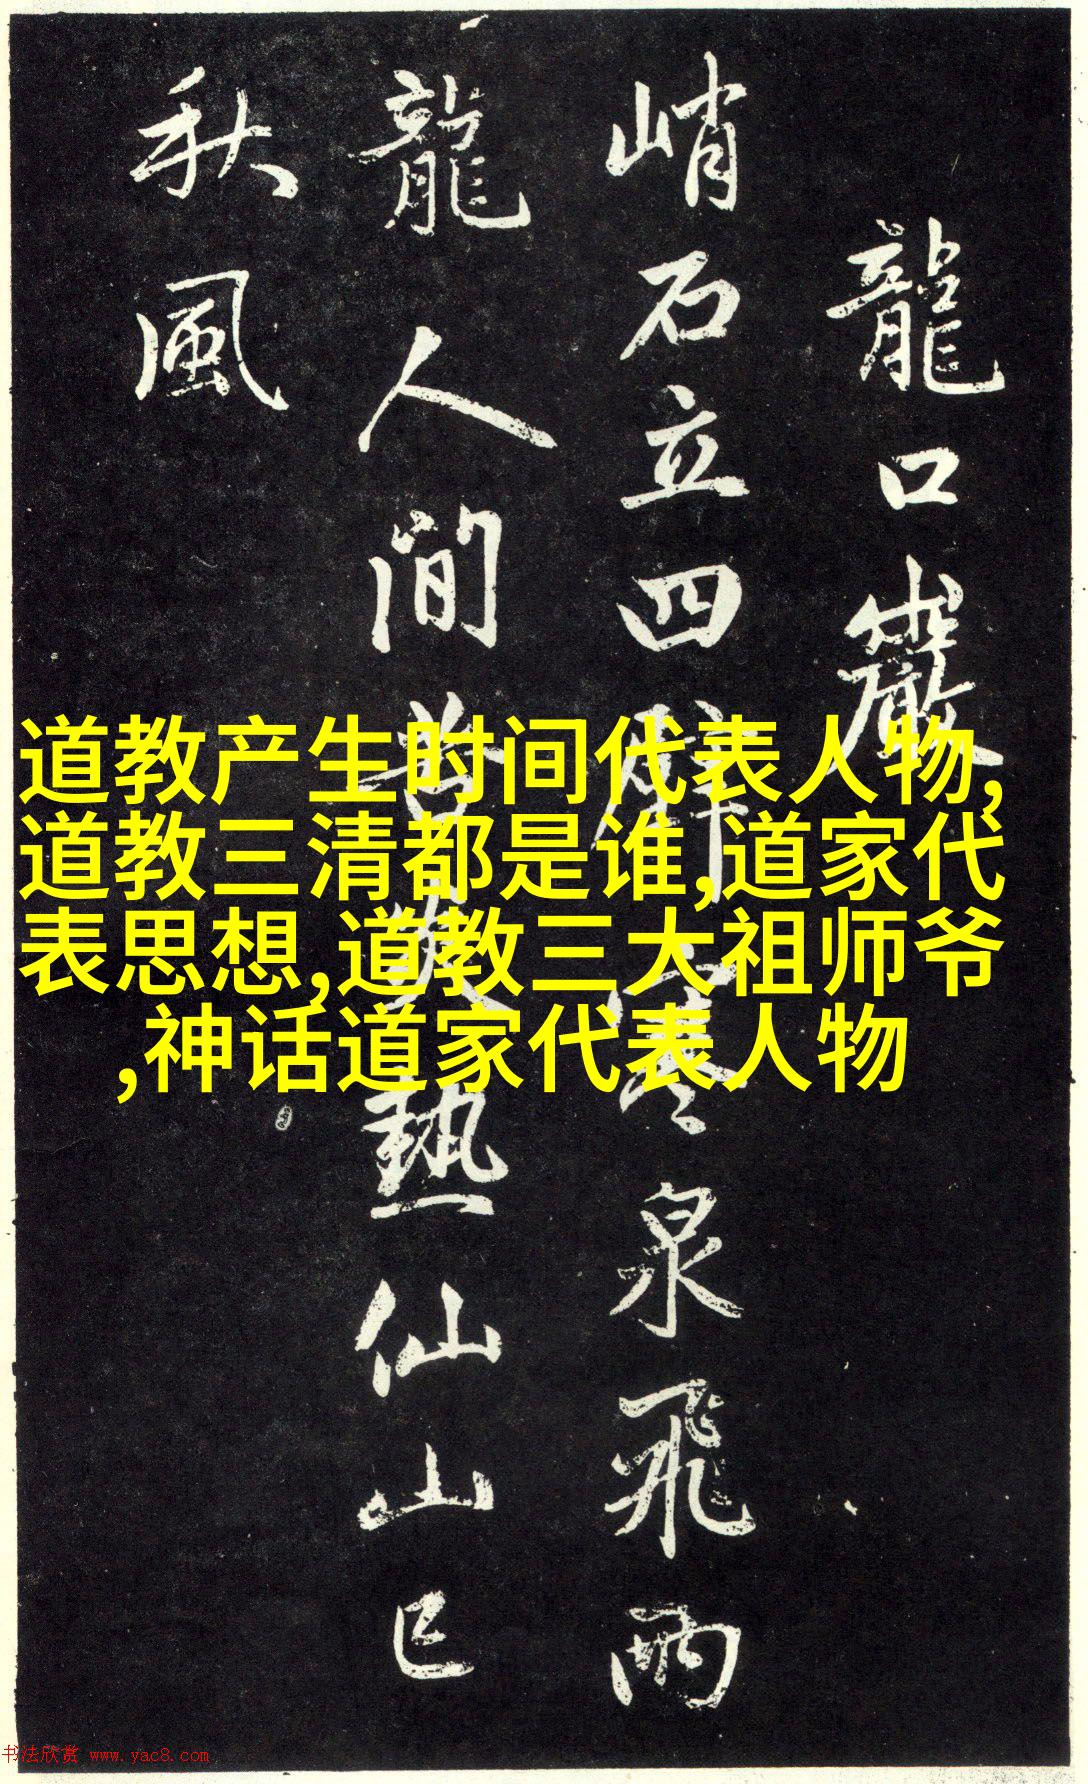 龍口巖
峭石立四壁寒泉飛兩
龍人間苦炎熱仙山已
秋風
道教产生时间代表人物,
道教三清都是谁,道家代
表思想,道教三大祖师爷
,神话道家代表人物
书法欣赏 www.yac8.com